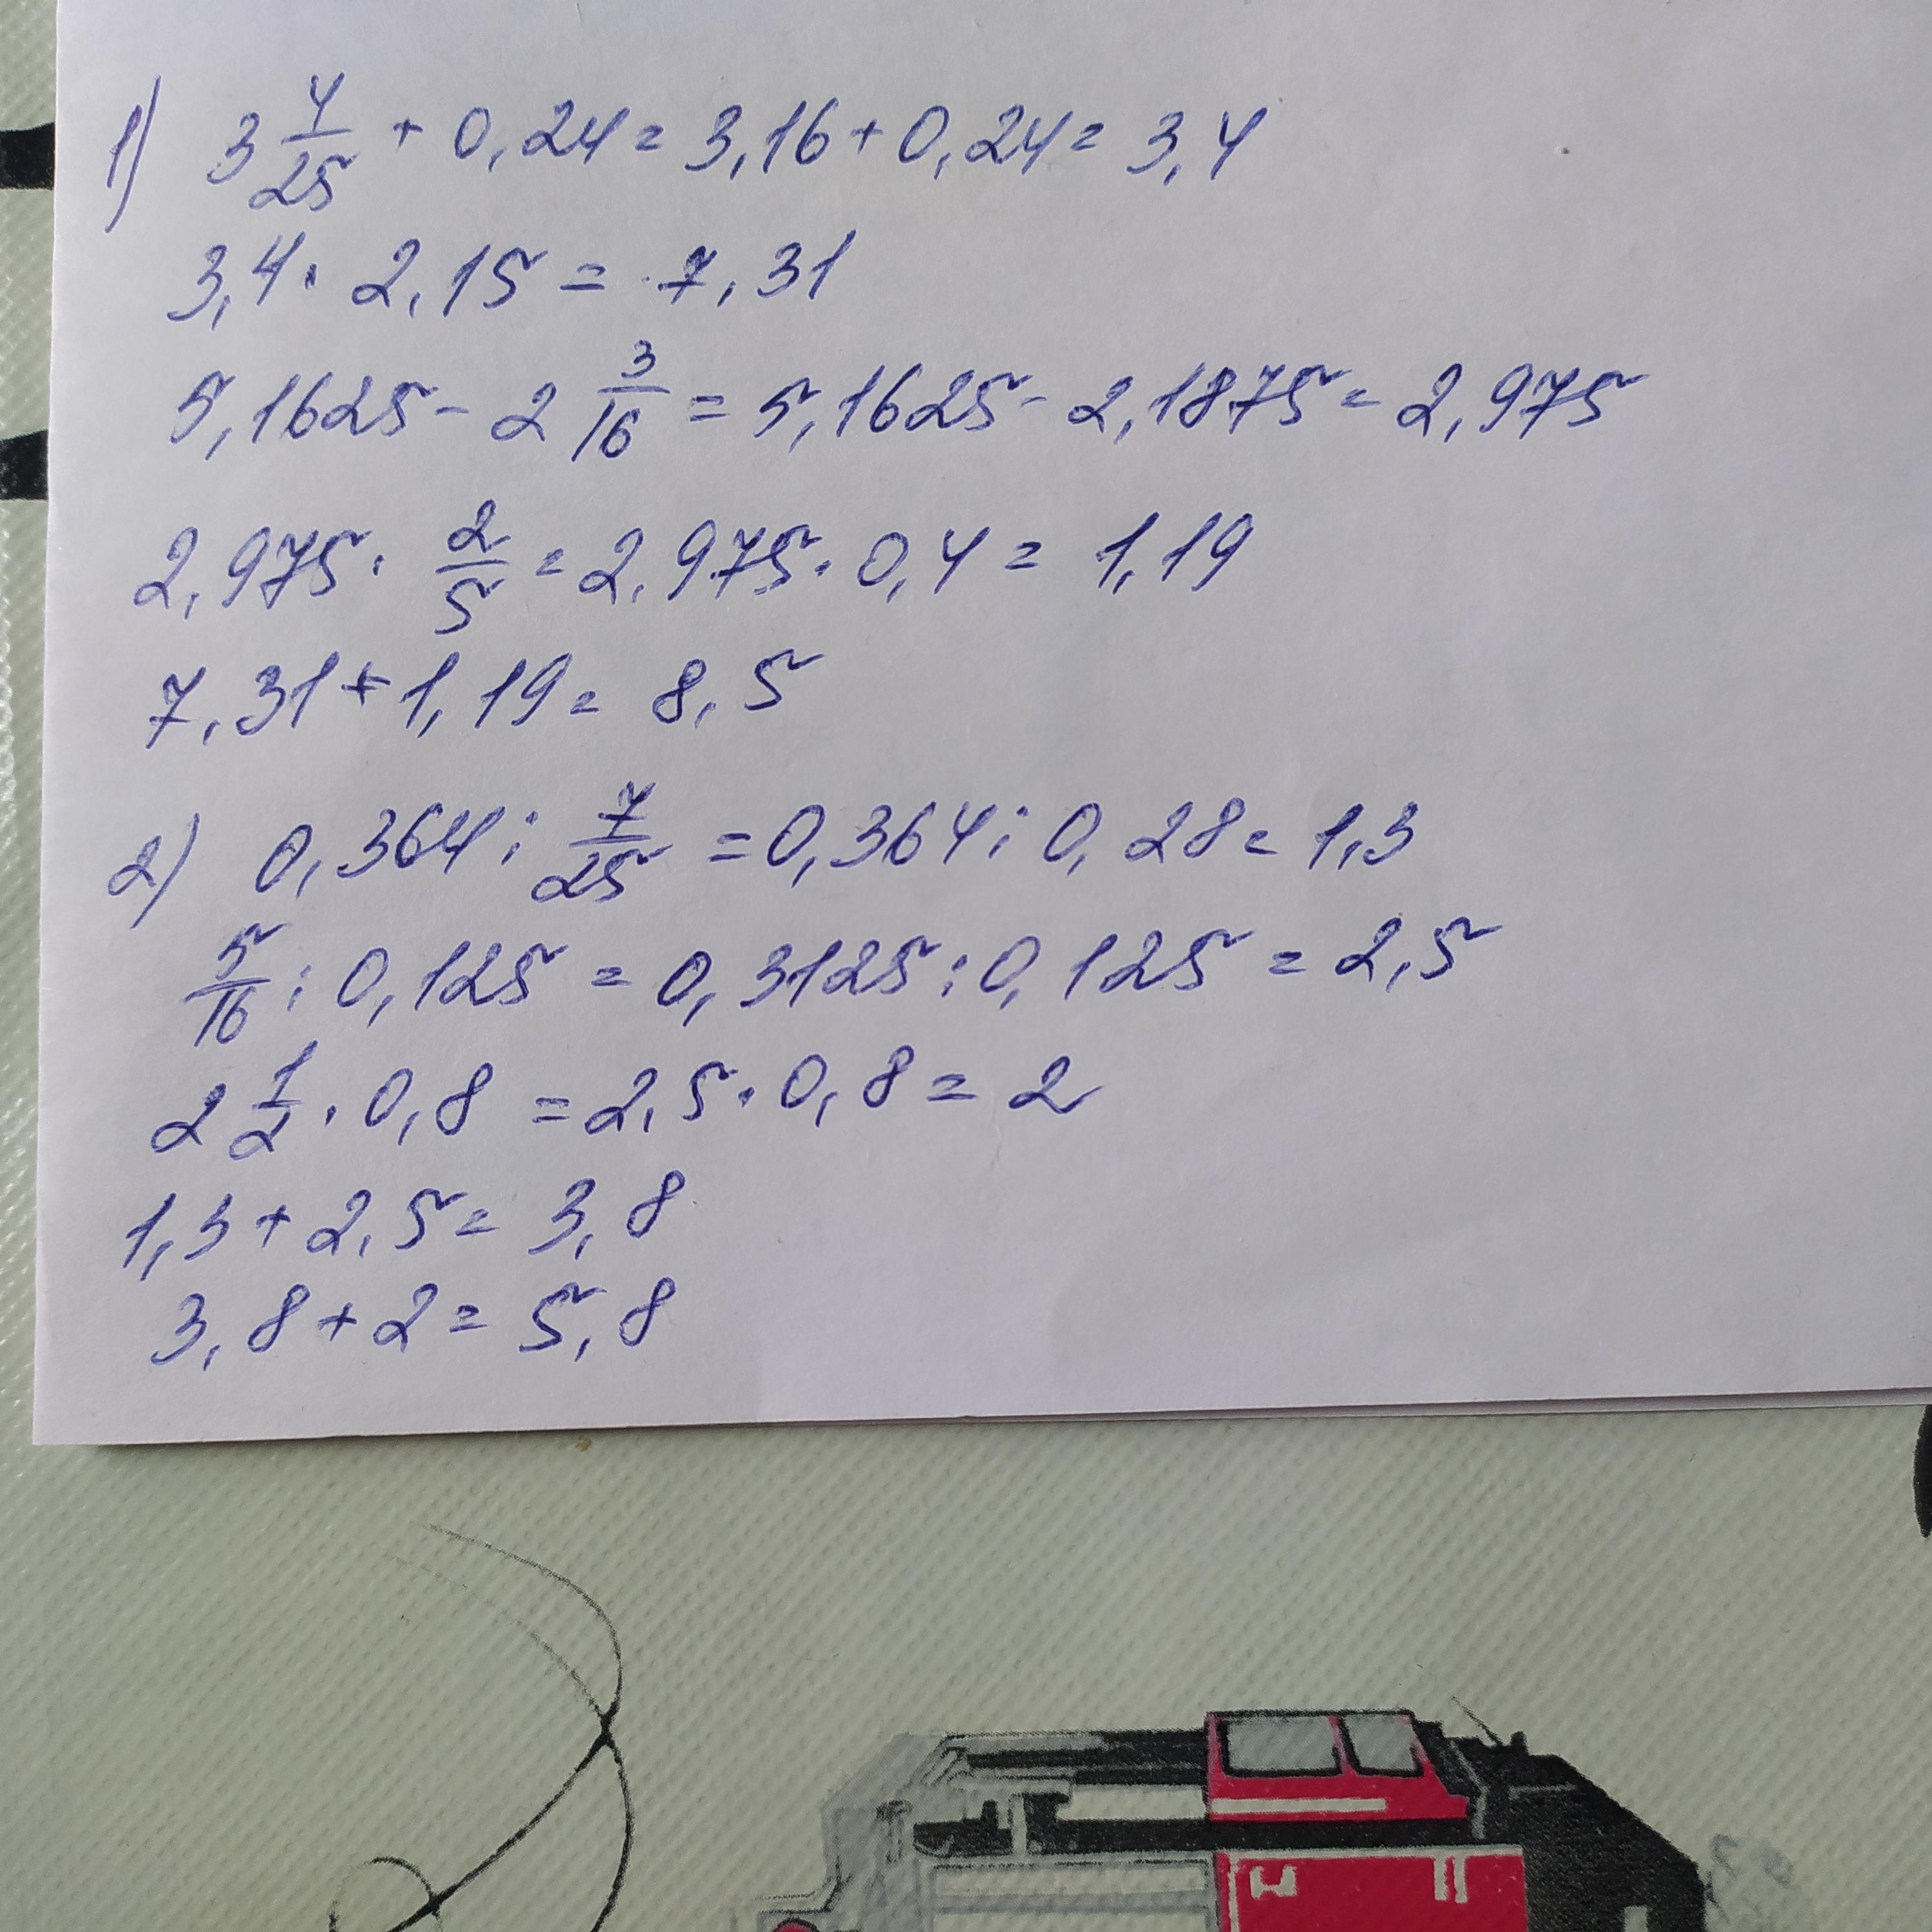 1) 3 4/25 + 0,24 = 3,16 + 0,24 = 3,4
3,4 · 2,15 = 7,31
5,1625 - 2 3/16 = 5,1625 - 2,1875 = 2,975
2,975 · 2/5 = 2,975 · 0,4 = 1,19
7,31 + 1,19 = 8,5
2) 0,364 : 7/25 = 0,364 : 0,28 = 1,3
5/16 : 0,125 = 0,3125 : 0,125 = 2,5
2 1/2 · 0,8 = 2,5 · 0,8 = 2
1,3 + 2,5 = 3,8
3,8 + 2 = 5,8